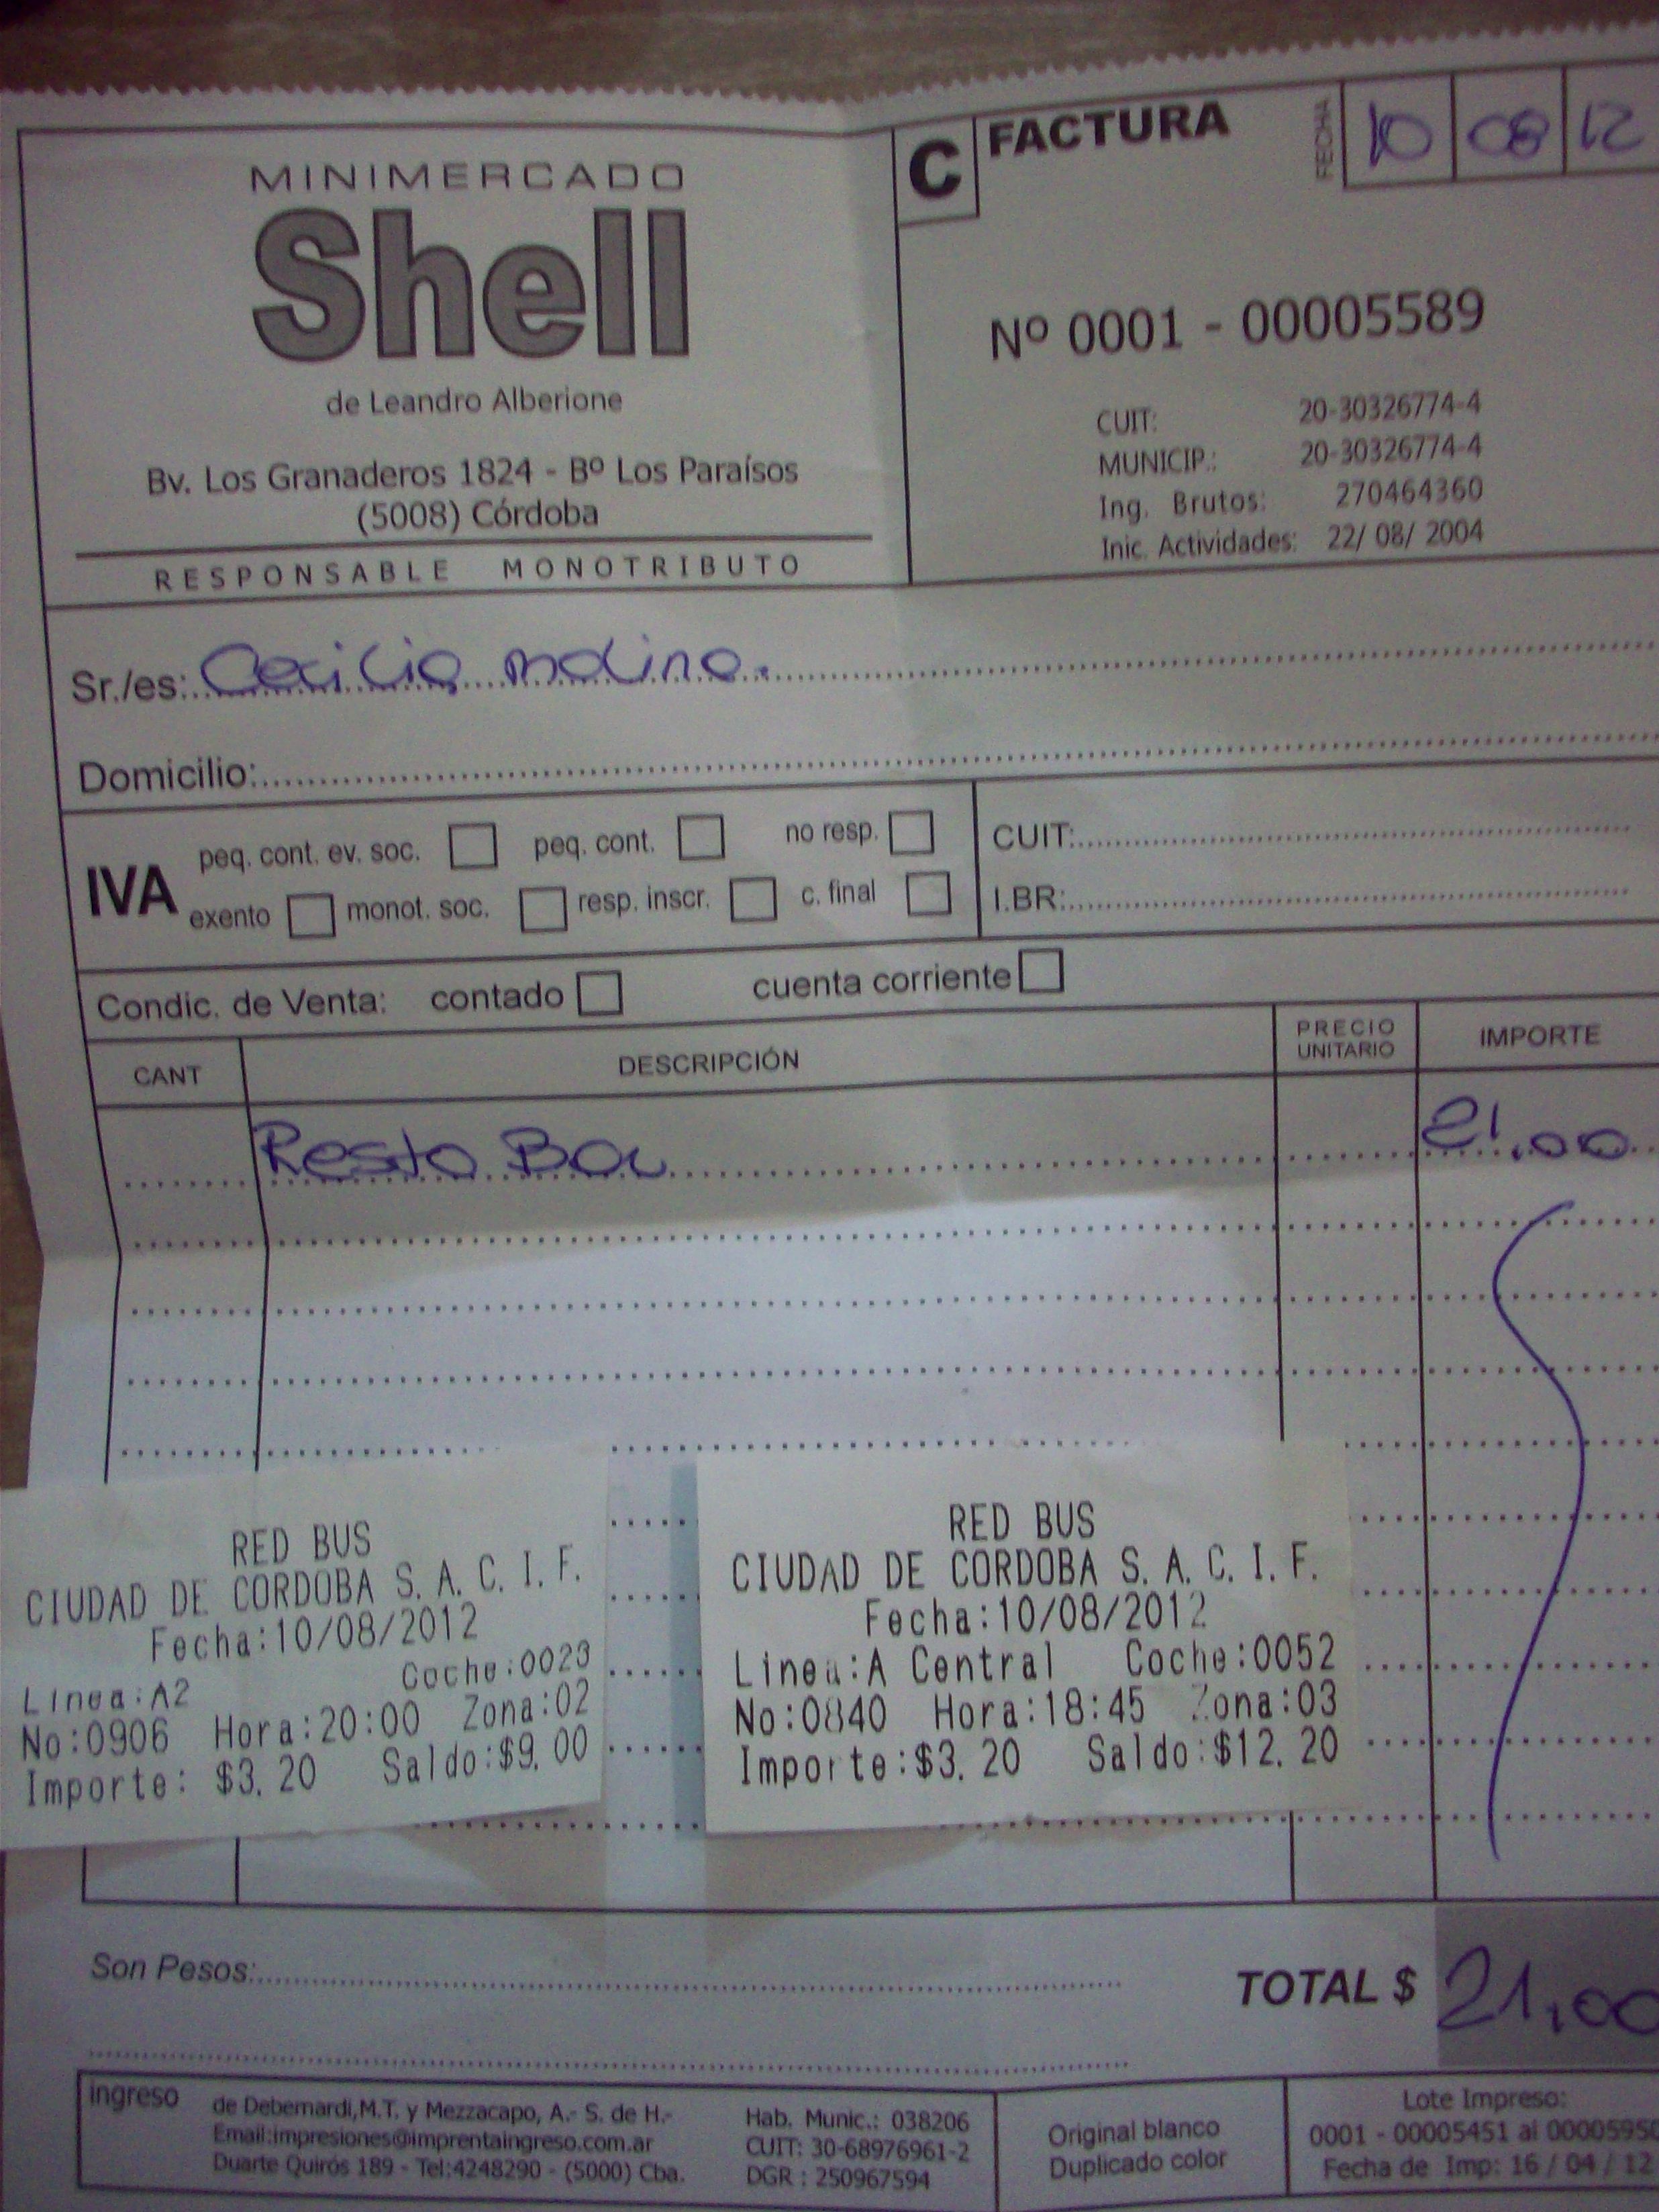 MINIMERCADO
Shell
de Leandro Alberione
Bv. Los Granaderos 1824 - Bº Los Paraísos
(5008) Córdoba
RESPONSABLE MONOTRIBUTO
C FACTURA
FECHA 10 08 12
Nº 0001 - 00005589
CUIT: 20-30326774-4
MUNICIP.: 20-30326774-4
Ing. Brutos: 270464360
Inic. Actividades: 22/ 08/ 2004
Sr./es: Cecilia molina.
Domicilio:
IVA
peq. cont. ev. soc. peq. cont. no resp.
exento monot. soc. resp. inscr. c. final
CUIT:
I.BR:
Condic. de Venta: contado cuenta corriente
CANT DESCRIPCIÓN PRECIO UNITARIO IMPORTE
Resto Bar 21.00
RED BUS
CIUDAD DE CORDOBA S. A. C. I. F.
Fecha:10/08/2012
Linea:A2 Coche:0023
No:0906 Hora:20:00 Zona:02
Importe: $3. 20 Saldo:$9. 00
RED BUS
CIUDAD DE CORDOBA S. A. C. I. F.
Fecha:10/08/2012
Linea:A Central Coche:0052
No:0840 Hora:18:45 Zona:03
Importe:$3. 20 Saldo:$12. 20
Son Pesos:
TOTAL $ 21,00
ingreso
de Debernardi,M.T. y Mezzacapo, A.- S. de H.-
Email:impresiones@imprentaingreso.com.ar
Duarte Quirós 189 - Tel:4248290 - (5000) Cba.
Hab. Munic.: 038206
CUIT: 30-68976961-2
DGR : 250967594
Original blanco
Duplicado color
Lote Impreso:
0001 - 00005451 al 00005950
Fecha de Imp: 16 / 04 / 12